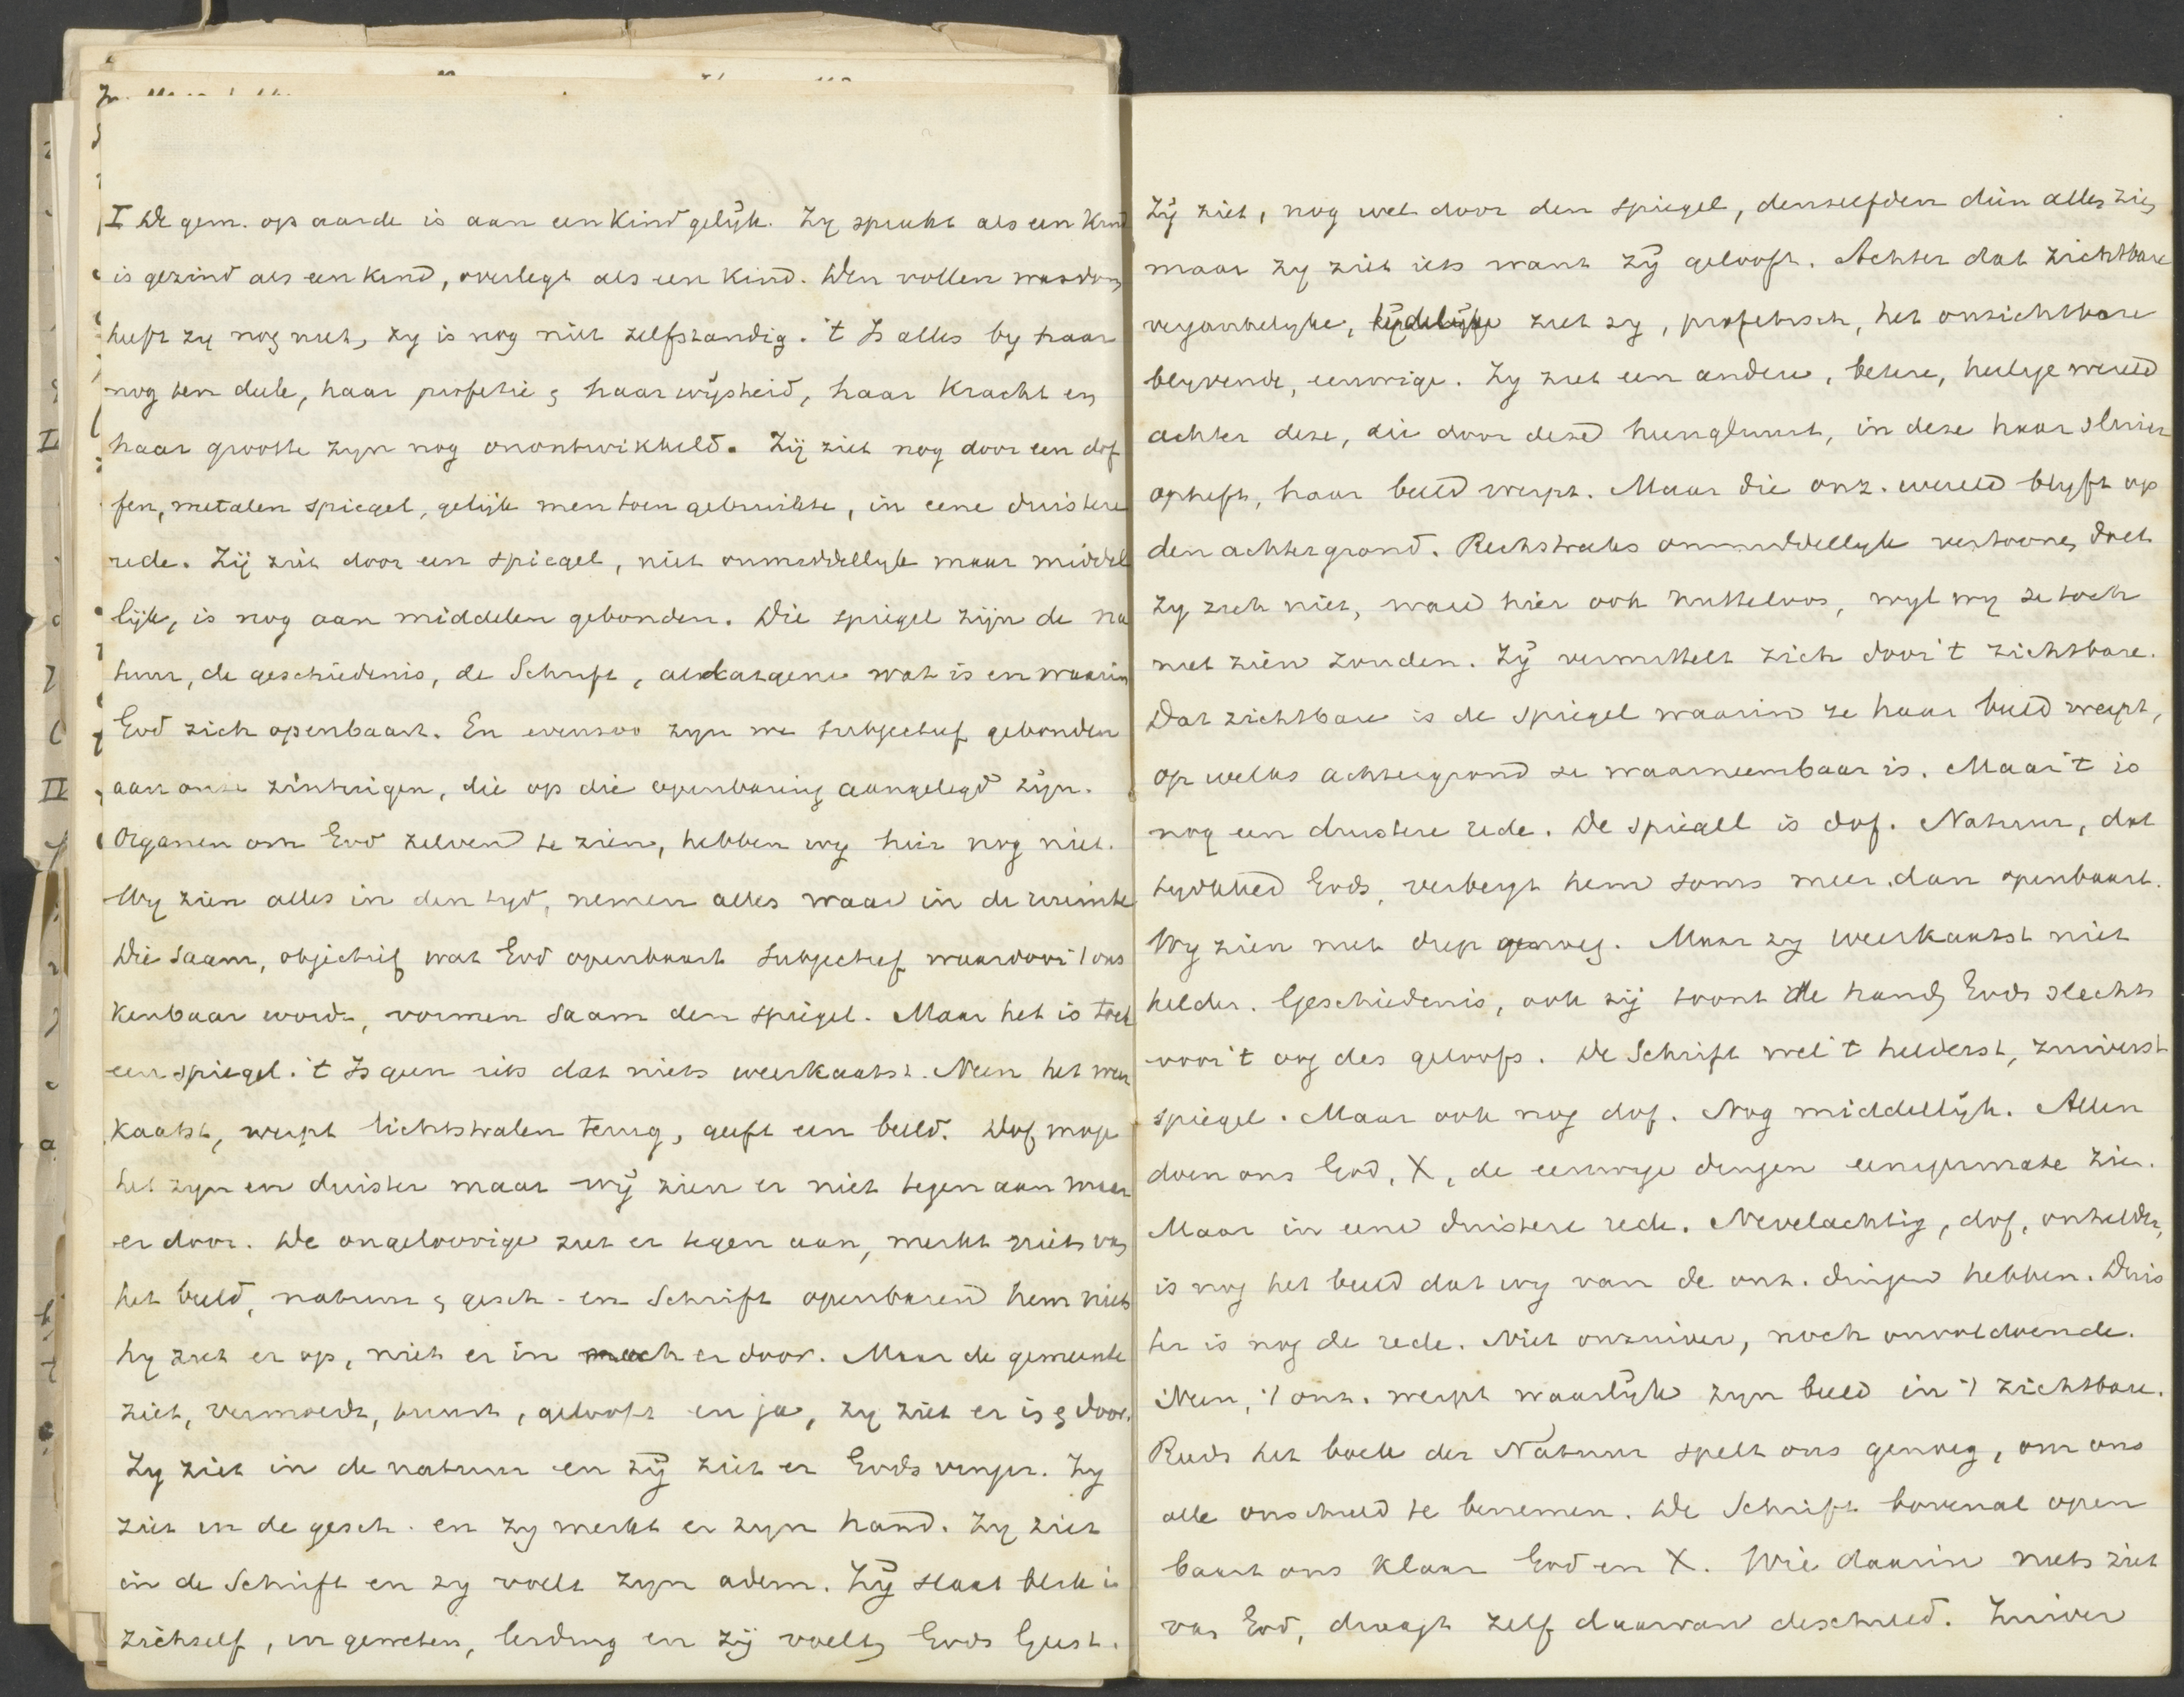 I De gem. op aarde is aan een kind gelijk. Zy spreekt als een kind
is gezind als een kind, overlegt als een kind. Den vollen wasdom
heeft zy nog niet, zy is nog niet zelfstandig. 't Is alles by haar
nog ten deele, haar profetie & haar wijsheid, haar kracht en
haar grootte zyn nog onontwikkeld. Zij ziet nog door een dof
fen, metalen spiegel, gelijk men toen gebruikte, in eene duistere
rede. Zij ziet door een spiegel, niet onmiddellyk maar middel
lijk, is nog aan middelen gebonden. Die spiegel zijn de na
tuur, de geschiedenis, de Schrift, al datgene wat is en waarin
God zich openbaart. En evenzoo zyn we subjectief gebonden
aan onze zintuigen, die op die openbaring aangelegd zijn.
Organen om God zelven te zien, hebben wy hier nog niet.
Wy zien alles in den tyd, nemen alles waar in de ruimte
Die saam, objectief wat God openbaart subjectief waardoor 't ons
kenbaar wordt, vormen saam den spiegel. Maar het is toch
een spiegel. 't Is geen iets dat niets weerkaatst. Neen het weer
kaatst, werpt lichtstralen terug, geeft een beeld. Dof moge
het zyn en duister maar wij zien er niet tegen aan maar
er door. De ongeloovige ziet er tegen aan, merkt niets van
het beeld, natuur & gesch. en Schrift openbaren hem niets
hy ziet er op, niet er in noch er door. Maar de gemeente
ziet, vermoedt, gelooft en ja, zy ziet er in & door.
Zy ziet in de natuur en zij ziet er Gods vinger. Zy
ziet in de gesch. en zy merkt er zyn hand. Zy ziet
in de Schrift en zy voelt zyn adem. Zij slaat blik in
zichzelf, in geweten, leiding en zij voelt Gods Geest.
Zij ziet, nog wel door den spiegel, denzelfden dien allen zien
maar zy ziet iets want zij gelooft. Achter dat zichtbare
vergankelyke, tijdelijke ziet zy, profetisch, het onzichtbare
blyvende, eeuwige. Zy ziet een andere, betere, heilige wereld
achter deze, die door deze heenglimt, in deze haar sluier
opheft, haar beeld werpt. Maar die onz. wereld blyft op
den achtergrond. Rechtstreeks onmiddellyk vertoonen doet
zy zich niet, ware hier ook nutteloos, wyl wy ze toch
niet zien zouden. Zij vermittelt zich door 't zichtbare.
Dat zichtbare is de spiegel waarin ze haar beeld werpt,
op welks achtergrond ze waarneembaar is. Maar 't is
nog een duistere rede. De spiegel is dof. Natuur, dat
Gods, verbergt hem soms meer dan openbaart.
Wy zien niet diep genoeg. Maar zy weerkaatst niet
helder. Geschiedenis, ook zij toont de hand Gods slechts
voor 't oog des geloofs. De Schrift wel 't helderst, zuiverst
spiegel. Maar ook nog dof. Nog middellijk. Allen
doen ons God, X, de eeuwige dingen eenigermate zien.
Maar in eene duistere rede. Nevelachtig, dof, onhelder,
is nog het beeld dat wy van de onz. dingen hebben. Duis
ter is nog de rede. Niet onzuiver, noch onvoldoende.
Neen, 't onz. werpt waarlijk zyn beeld in 't zichtbare.
Reeds het boek der Natuur spelt ons genoeg, om ons
alle onschuld te benemen. De Schrift bovenal open
baart ons klaar God en X. Wie daarin niets ziet
van God, draagt zelf daarvan de schuld. Zuiver